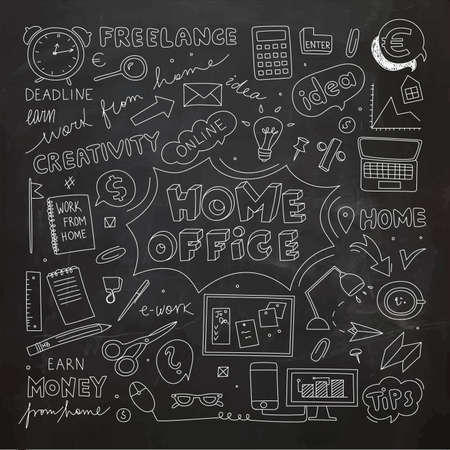 FREELANCE
ENTER
€
DEADLINE
earn
work from home
idea
idea
CREATIVITY
ONLINE
$
$
%
WORK
FROM
HOME
HOME
OFFICE
HOME
e-work
To
Do
HB
?
EARN
MONEY
from home
$
TiPS